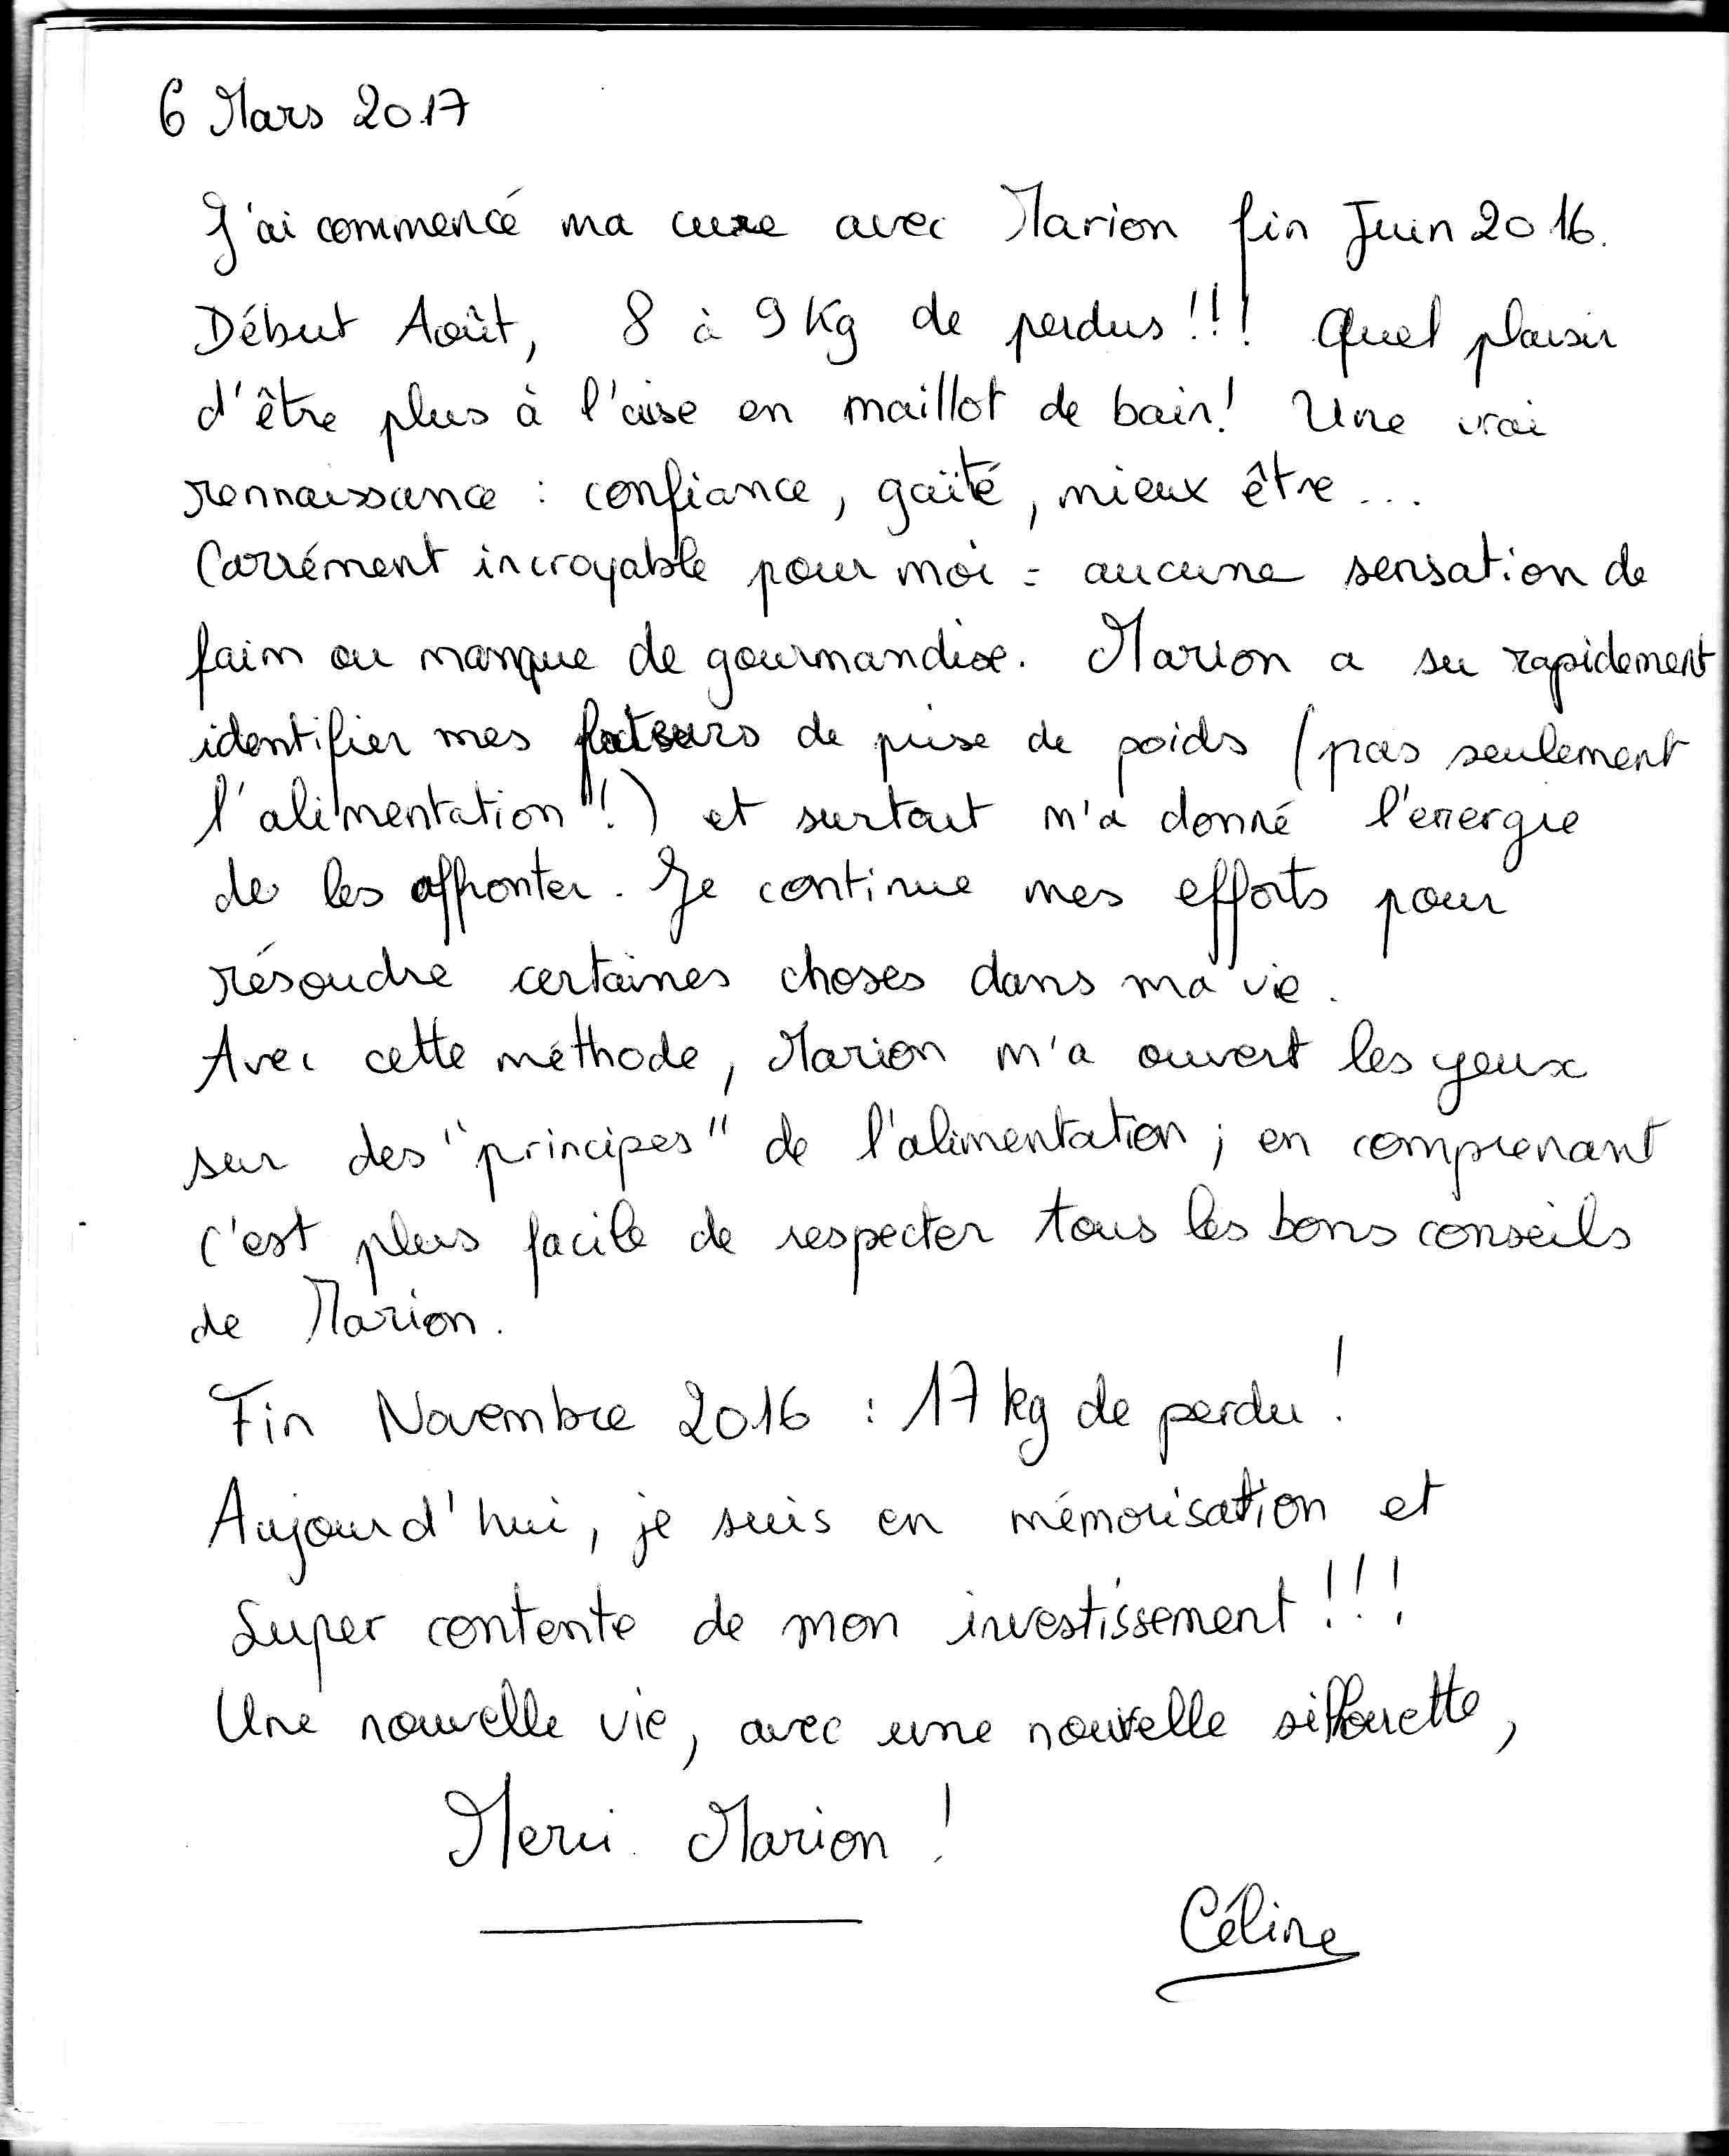 6 Mars 2017
J'ai commencé ma cure avec Marion fin Juin 2016.
Début Août, 8 à 9 Kg de perdus !!! Quel plaisir
d'être plus à l'aise en maillot de bain! Une vrai
rennaissance : confiance, gaïté, mieux être...
Carrément incroyable pour moi = aucune sensation de
faim ou manque de gourmandise. Marion a su rapidement
identifier mes facteurs de prise de poids (pas seulement
l'alimentation !!) et surtout m'a donné l'energie
de les affronter. Je continue mes efforts pour
résoudre certaines choses dans ma vie.
Avec cette méthode, Marion m'a ouvert les yeux
sur des "principes" de l'alimentation ; en comprenant
c'est plus facile de respecter tous les bons conseils
de Marion.
Fin Novembre 2016 : 17 kg de perdu !
Aujourd'hui, je suis en mémorisation et
Super contente de mon investissement !!!
Une nouvelle vie, avec une nouvelle silhouette,
Merci Marion !
Céline